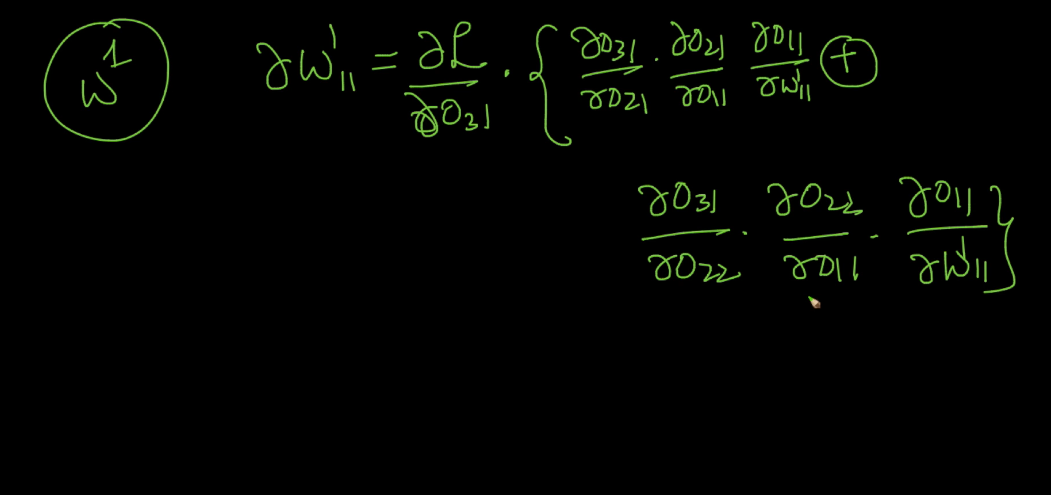 w^1 ∂w^1_11 = ∂L/∂O_31 · { ∂O_31/∂O_21 · ∂O_21/∂O_11 ∂O_11/∂w^1_11 +
∂O_31/∂O_22 · ∂O_22/∂O_11 · ∂O_11/∂w^1_11 }